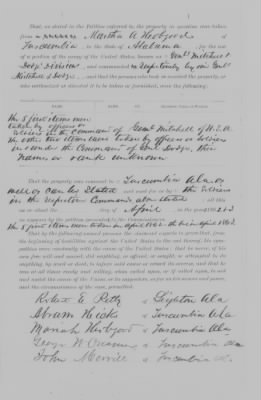 That, as stated in the Petition referred, the property in question was taken
from Martha A Hobgood of
Tuscumbia in the State of Alabama, for the use
of a portion of the army of the United States, known as Genl Mitchel &
Dodge Divisions and commanded respectively by Genl
Mitchel & Dodge, and that the persons who took or received the property, or
who authorized or directed it to be taken or furnished, were the following:
The 5 first items were
taken by officers or
soldiers in the command of Genl Mitchell of U.S.A.
the other items were taken by officers or soldiers
under the Command of Genl Dodge, their
names or rank unknown
That the property was removed to Tuscumbia Ala or
and used for or by the soldiers
in the respective Commands above stated all this
on or about the day of April in the year
as appears by the petition presented to the Commissioners.
The 5 first items were taken in April 1862
That by the following named persons the claimant expects to prove that, from
the beginning of hostilities against the United States to the end thereof, his sym-
pathies were constantly with the cause of the United States; that he never, of his
own free will and accord, did anything, or offered, or sought, or attempted to do
anything, by word or deed, to injure said cause or retard its success, and that he
was at all times ready and willing, when called upon, or if called upon, to aid
and assist the cause of the Union, or its supporters, so far as his means and power,
and the circumstances of the case, permitted.
Robert E Petty of Leighton Ala
Abram Hicks of Tuscumbia Ala
Mariah Hobgood of Tuscumbia Ala
George W of Tuscumbia Ala
John Merrill of Tuscumbia Al.